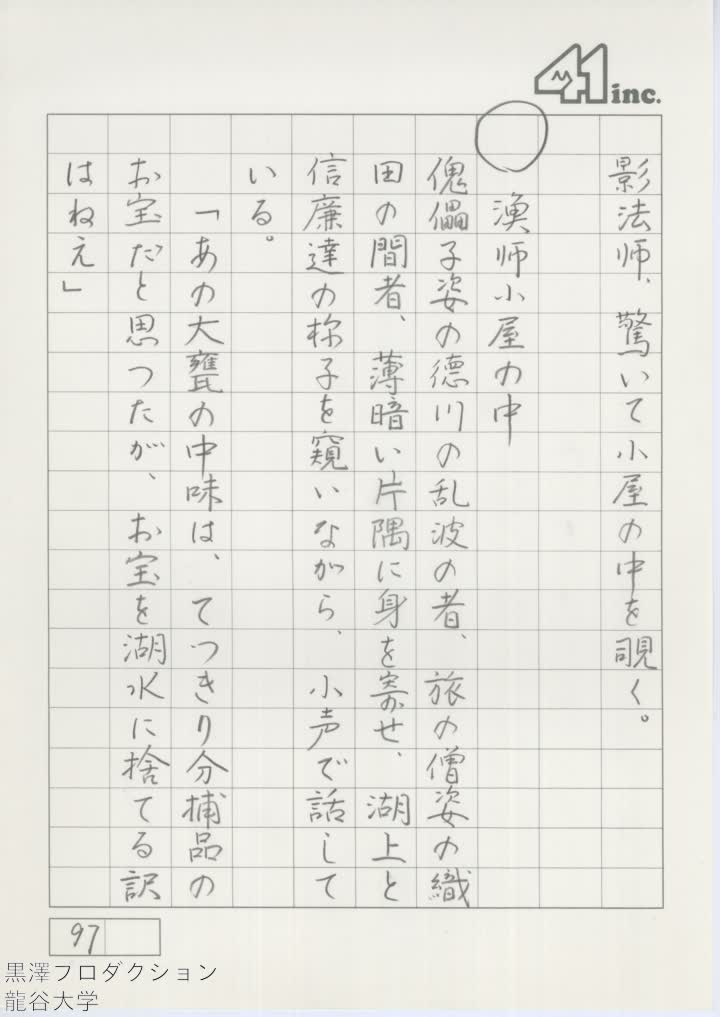 41 inc.
影法師、驚いて小屋の中を覗く。
漁師小屋の中
傀儡子姿の徳川の乱波の者、旅の僧姿の織
田の間者、薄暗い片隅に身を寄せ、湖上と
信廉達の様子を窺いながら、小声で話して
いる。
「あの大甕の中味は、てつきり分捕品の
お宝だと思つたが、お宝を湖水に捨てる訳
はねえ」
97
黒澤フロダクション
龍谷大学